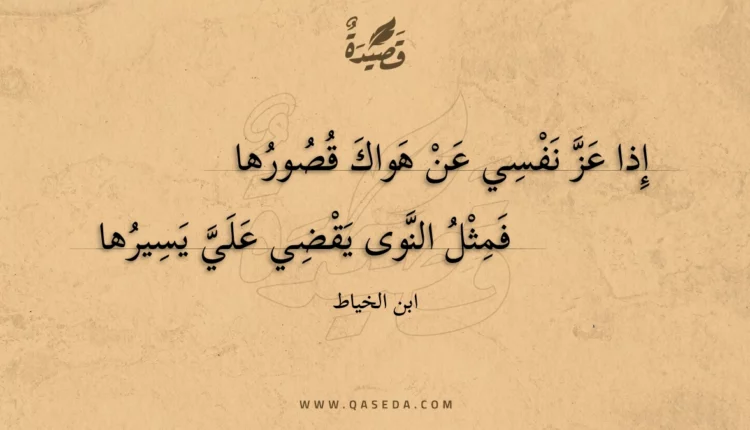 قَصِيدَةٌ
إِذا عَزَّ نَفْسِي عَنْ هَواكَ قُصُورُها
فَمِثْلُ النَّوى يَقْضِي عَلَيَّ يَسِيرُها
ابن الخياط
WWW.QASEDA.COM